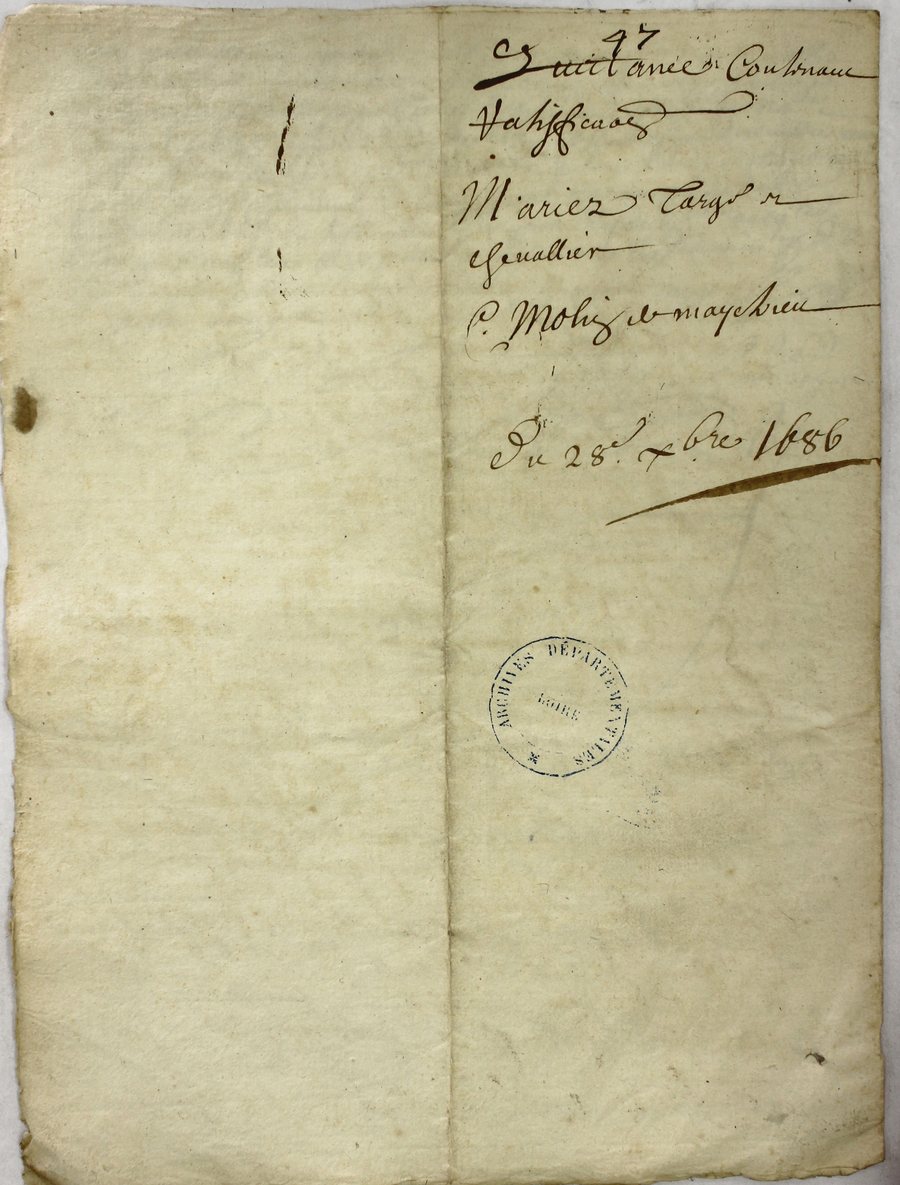 47
Quittance Contenant
Ratification
Mariez Targe et
chevallier
C. Molin de maychieu
Du 28e. xbre 1686
ARCHIVES DÉPARTEMENTALES
LOIRE